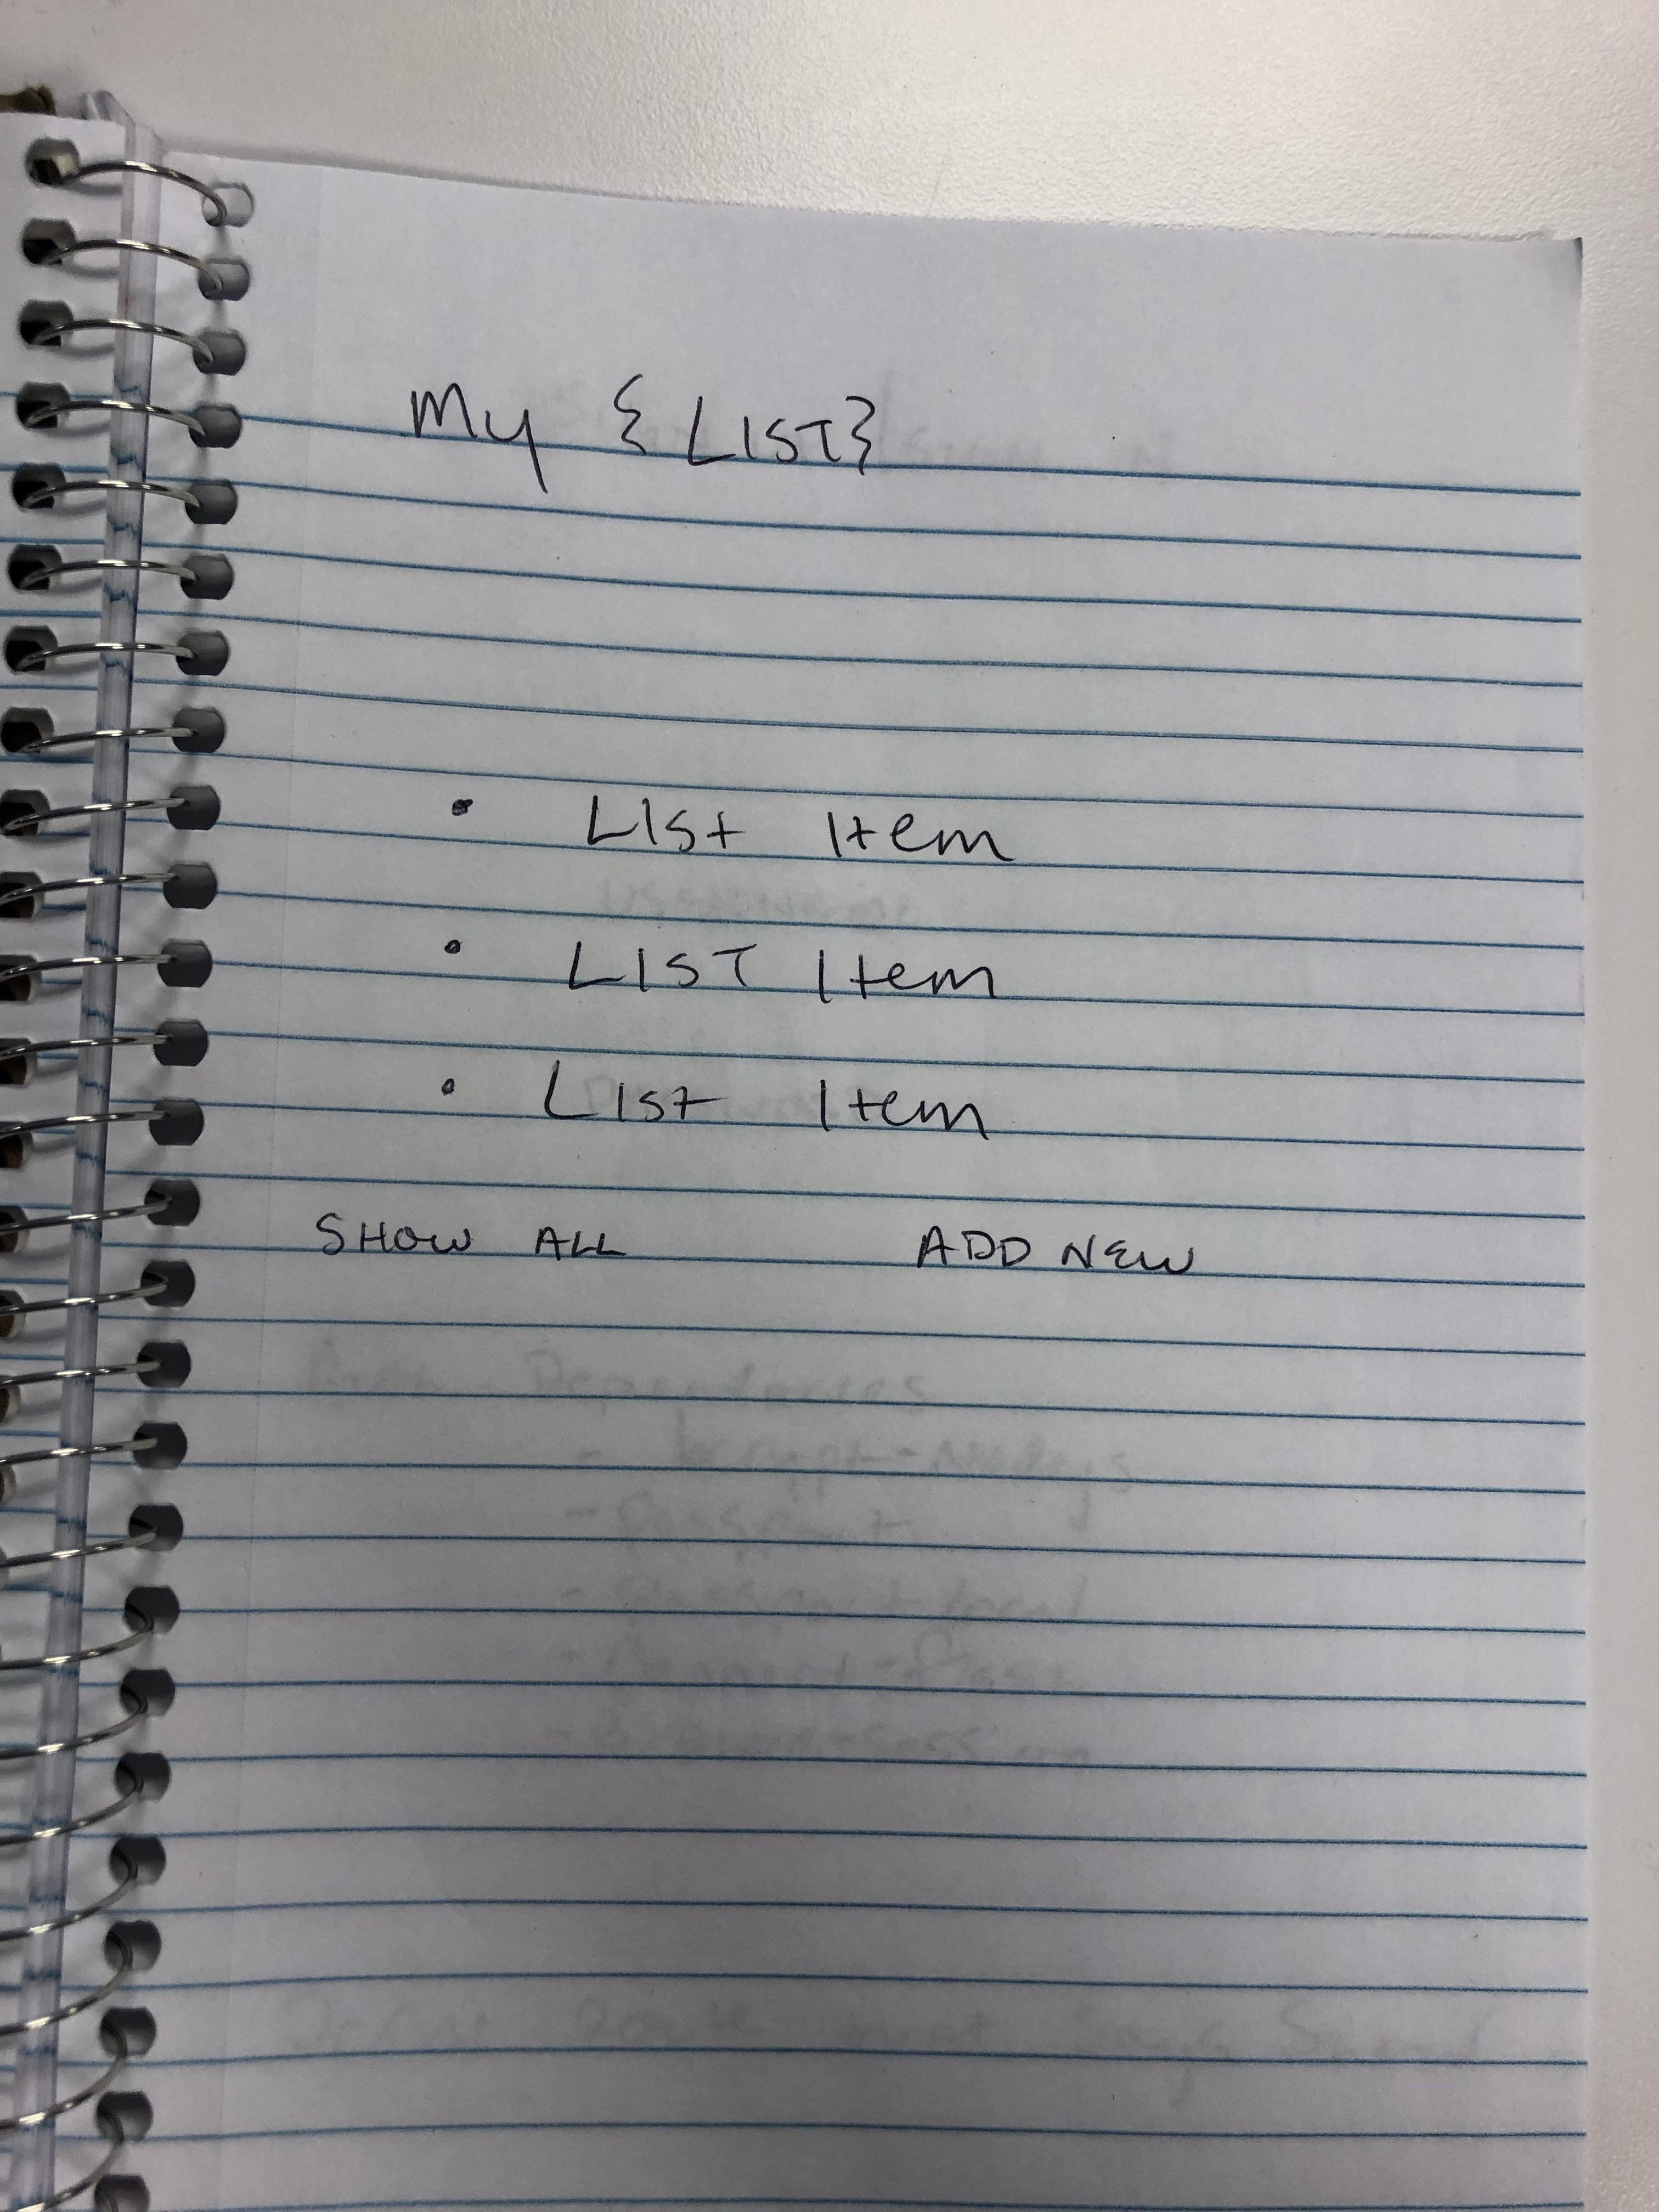 My {LIST}
• List Item
• LIST Item
• List Item
SHOW ALL ADD NEW